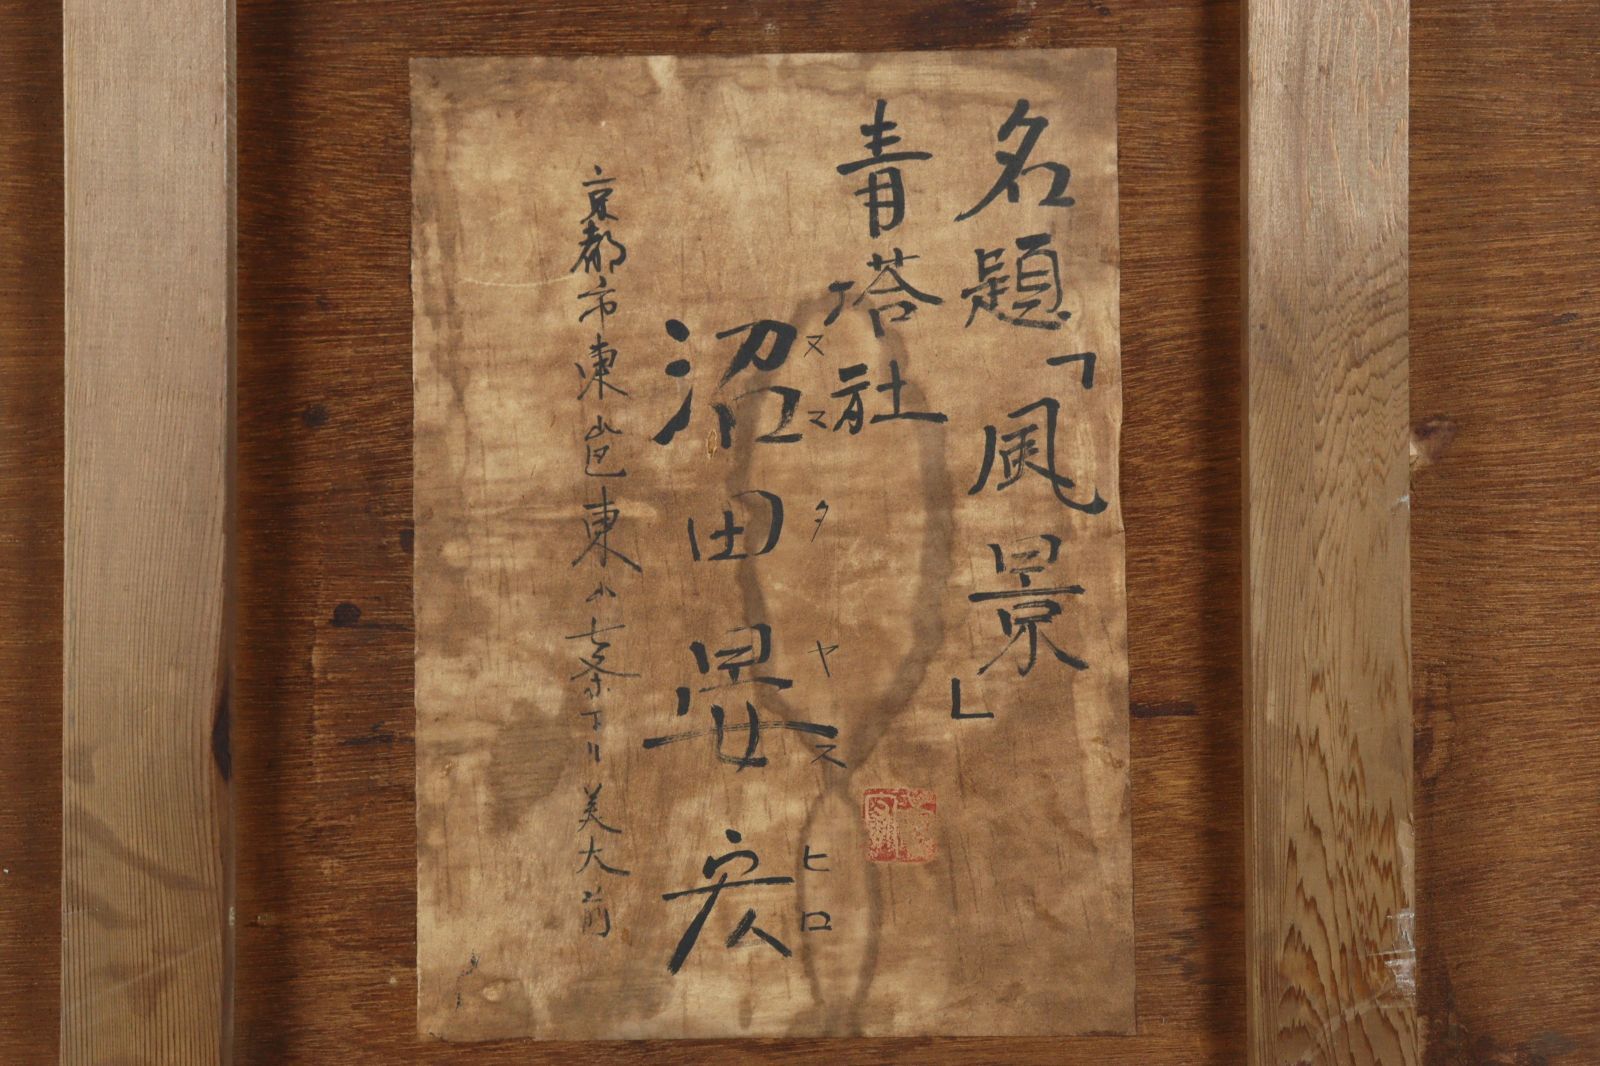 名題「風景」
青塔社
沼田晏宏
ヌマタヤスヒロ
京都市東山区東山七条下ル美大前